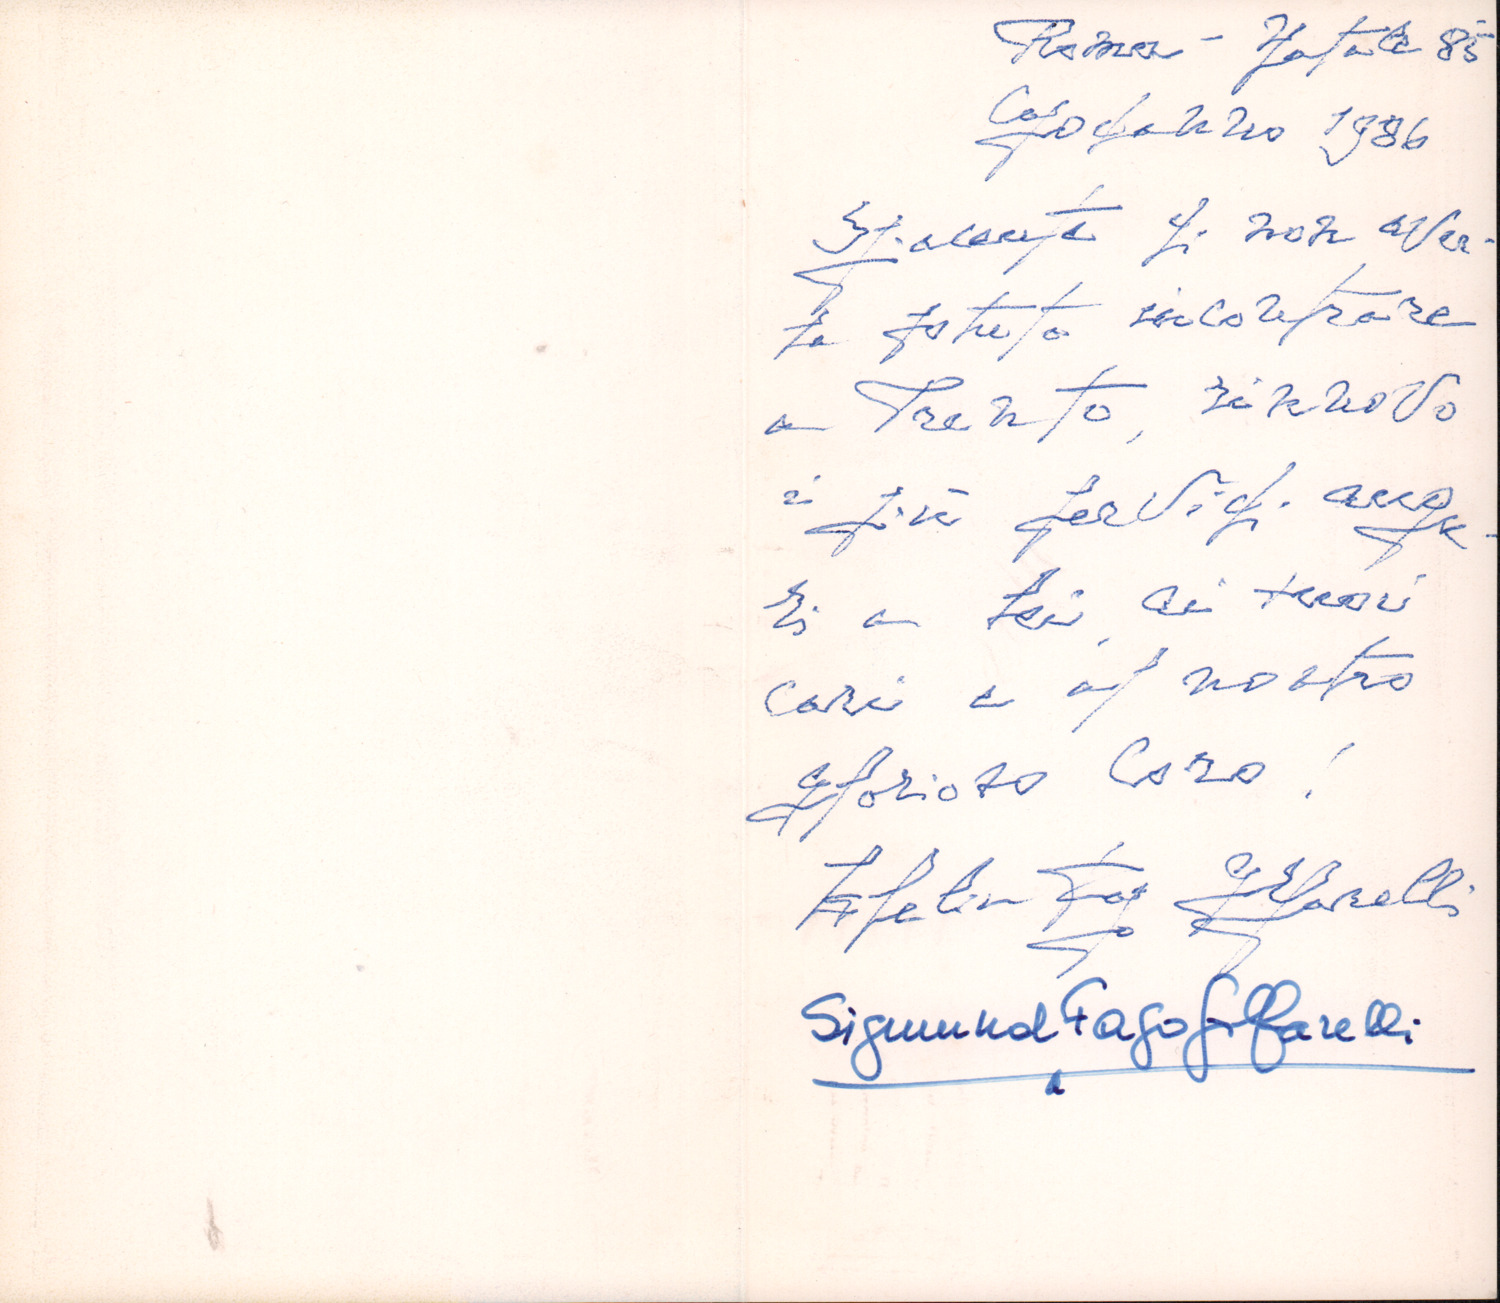 Roma - Natale 85
Capodanno 1986
Spiacente di non aver-
La potuto incontrare
a Trento, rinnovo
i più fervidi augu-
ri a Lei, ai suoi
cari e al nostro
glorioso Coro!
Fago Golfarelli
Sigmund Fago Golfarelli